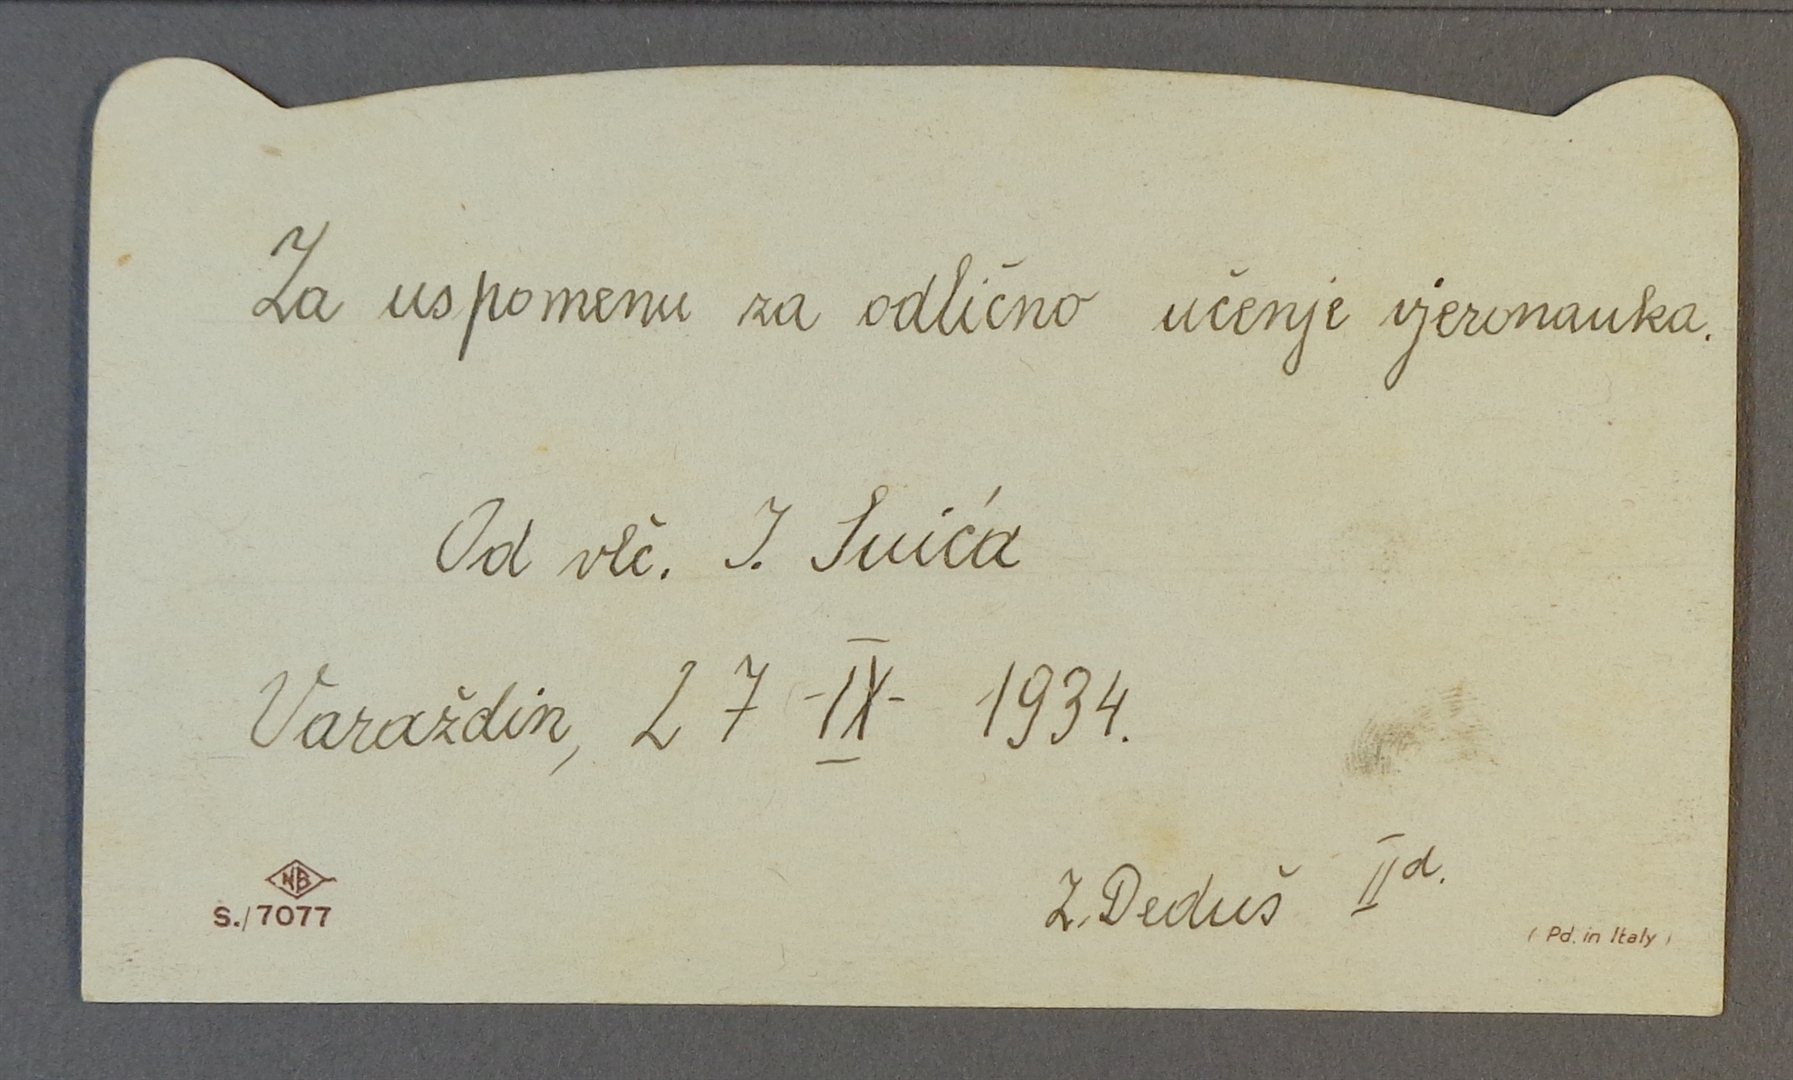 Za uspomenu za odlično učenje vjeronauka.
Od vlč. J. Suića
Varaždin, 27 -IX- 1934.
Z. Deduš II d.
NB
S./7077
(Pd. in Italy)